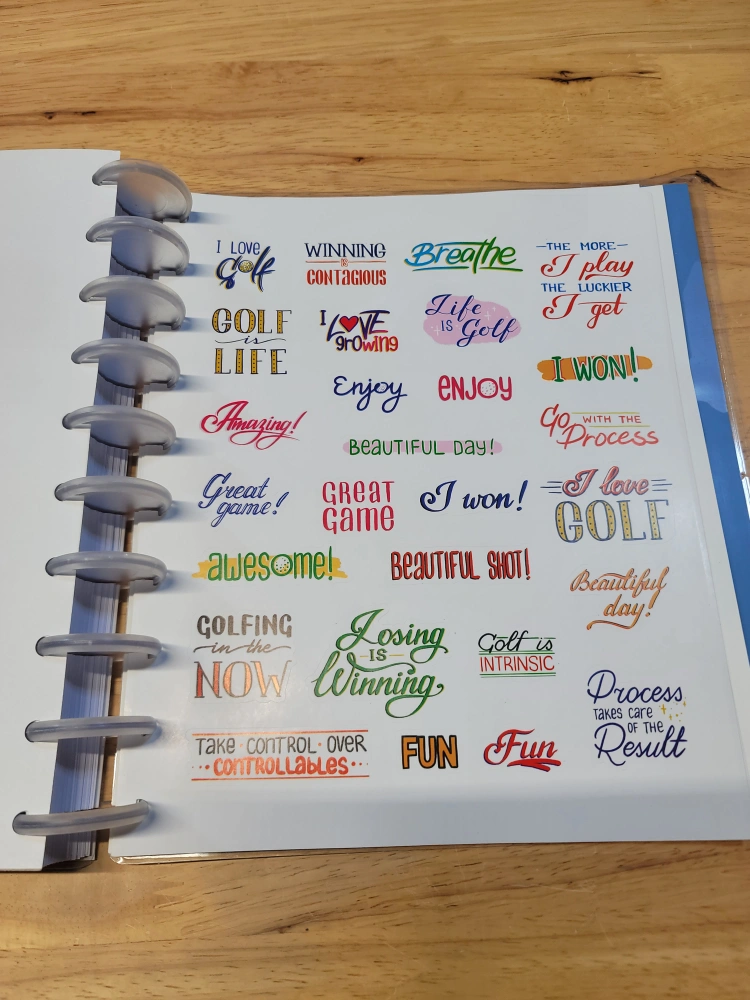 I LOVE
Golf
WINNING
IS
CONTAGIOUS
Breathe
THE MORE
I play
THE LUCKIER
I get
GOLF
is
LIFE
I LOVE
growing
Life
IS Golf
Enjoy
enJOY
I WON!
Amazing!
BEAUTIFUL DAY!
Go WITH THE
Process
Great
game!
GREAT
Game
I won!
I love
GOLF
awesome!
BEAUTIFUL SHOT!
Beautiful
day!
GOLFING
in the
NOW
Losing
IS
Winning
Golf is
INTRINSIC
Process
TAKES CARE
OF THE
Result
TAKE CONTROL OVER
CONTROLLABLES
FUN
Fun